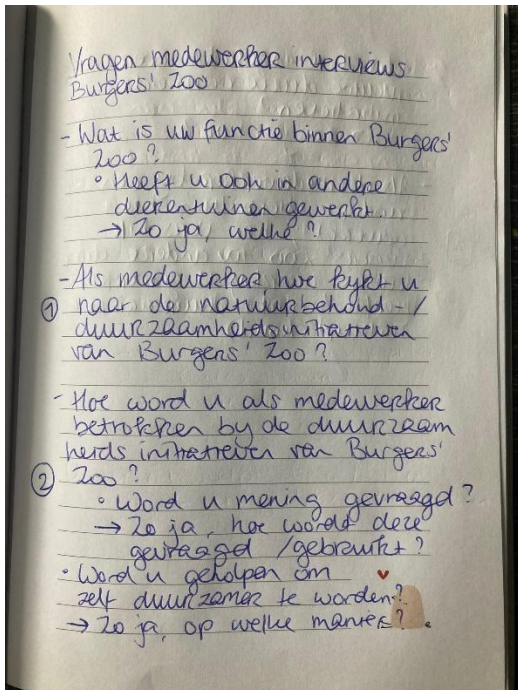 Vragen medewerker interviews
Burgers' Zoo
- Wat is uw functie binnen Burgers'
Zoo?
• Heeft u ook in andere
dierentuinen gewerkt
→ Zo ja, welke?
- Als medewerker hoe kijkt u
① naar de natuurbehoud-/
duurzaamheidsinitiatieven
van Burgers' Zoo?
- Hoe word u als medewerker
betrokken bij de duurzaam
heids initiatieven van Burgers'
② Zoo?
• Word u mening gevraagd?
→ Zo ja, hoe wordt deze
gevraagd /gebruikt?
• Word u geholpen om
zelf duurzamer te worden?
→ Zo ja, op welke manier?